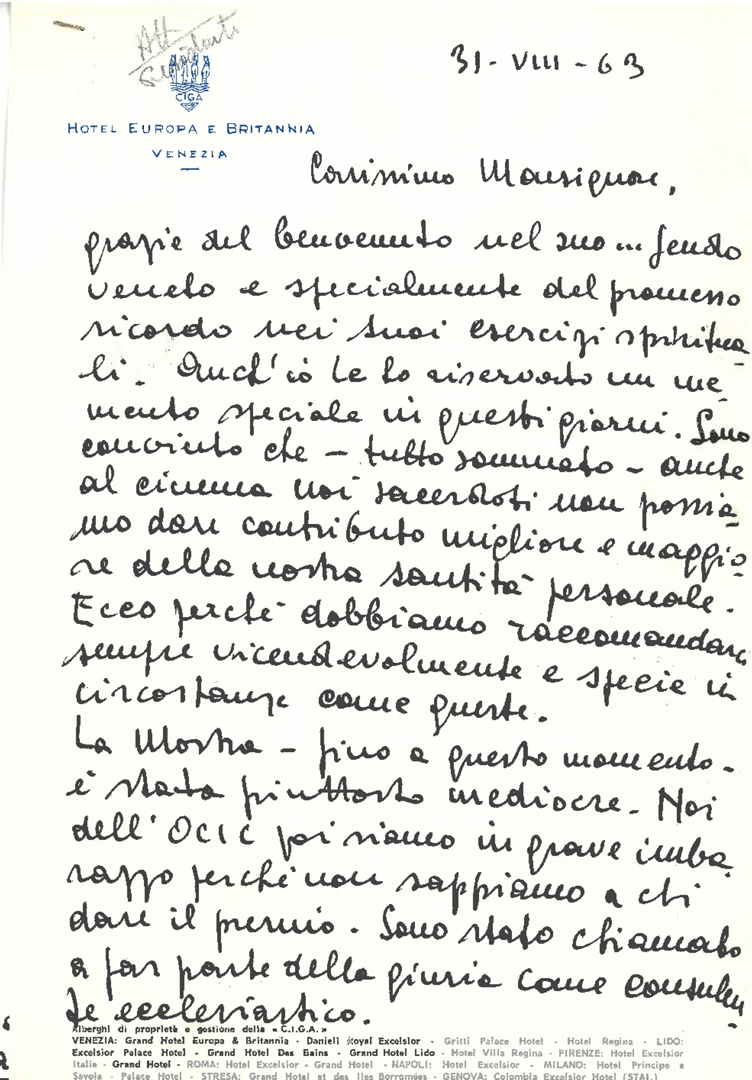 Att
31-VIII-63
CIGA
HOTEL EUROPA E BRITANNIA
VENEZIA
Carissimo Monsignore,
grazie del benvenuto nel suo... feudo
veneto e specialmente del promesso
ricordo nei suoi esercizi spiritua
li. Anch'io Le ho riservato un me
mento speciale in questi giorni. Sono
convinto che – tutto sommato – anche
al cinema noi sacerdoti non possia
mo dare contributo migliore e maggio
re della nostra santità personale.
Ecco perché dobbiamo raccomandarci
sempre vicendevolmente e specie in
circostanze come queste.
La Mostra – fino a questo momento –
è stata piuttosto mediocre. Noi
dell'OCIC poi siamo in grave imba
razzo perché non sappiamo a chi
dare il premio. Sono stato chiamato
a far parte della giuria come consulen
te ecclesiastico.
Alberghi di proprietà e gestione della « C.I.G.A. »
VENEZIA: Grand Hotel Europa & Britannia - Danieli Royal Excelsior - Gritti Palace Hotel - Hotel Regina - LIDO:
Excelsior Palace Hotel - Grand Hotel Des Bains - Grand Hotel Lido - Hotel Villa Regina - FIRENZE: Hotel Excelsior
Italie - Grand Hotel - ROMA: Hotel Excelsior - Grand Hotel - NAPOLI: Hotel Excelsior - MILANO: Hotel Principe e
Savoia - Palace Hotel - STRESA: Grand Hotel et des Iles Borromées - GENOVA: Colombia Excelsior Hotel (STAI.)